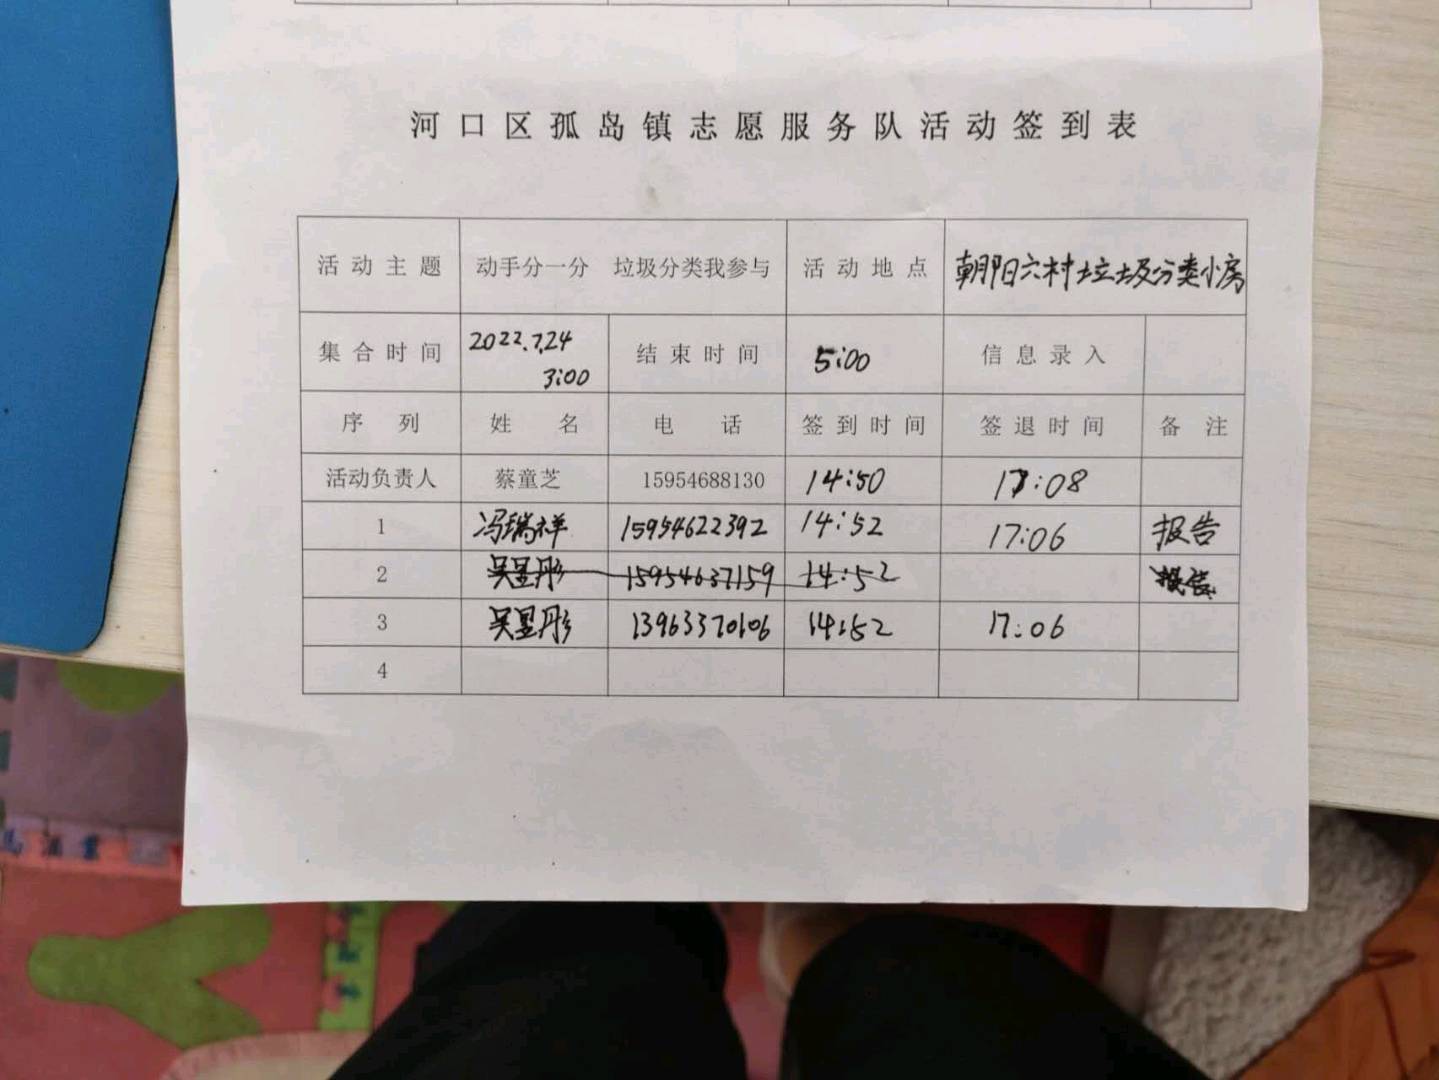 河口区孤岛镇志愿服务队活动签到表
活动主题 动手分一分 垃圾分类我参与 活动地点 朝阳六村垃圾分类小房
集合时间 2022.7.24 3:00 结束时间 5:00 信息录入
序列 姓名 电话 签到时间 签退时间 备注
活动负责人 蔡童芝 15954688130 14:50 17:08
1 冯瑞祥 15954622392 14:52 17:06 报告
2 吴昱彤 15954637159 14:52 报告
3 吴昱彤 13963370106 14:52 17:06
4